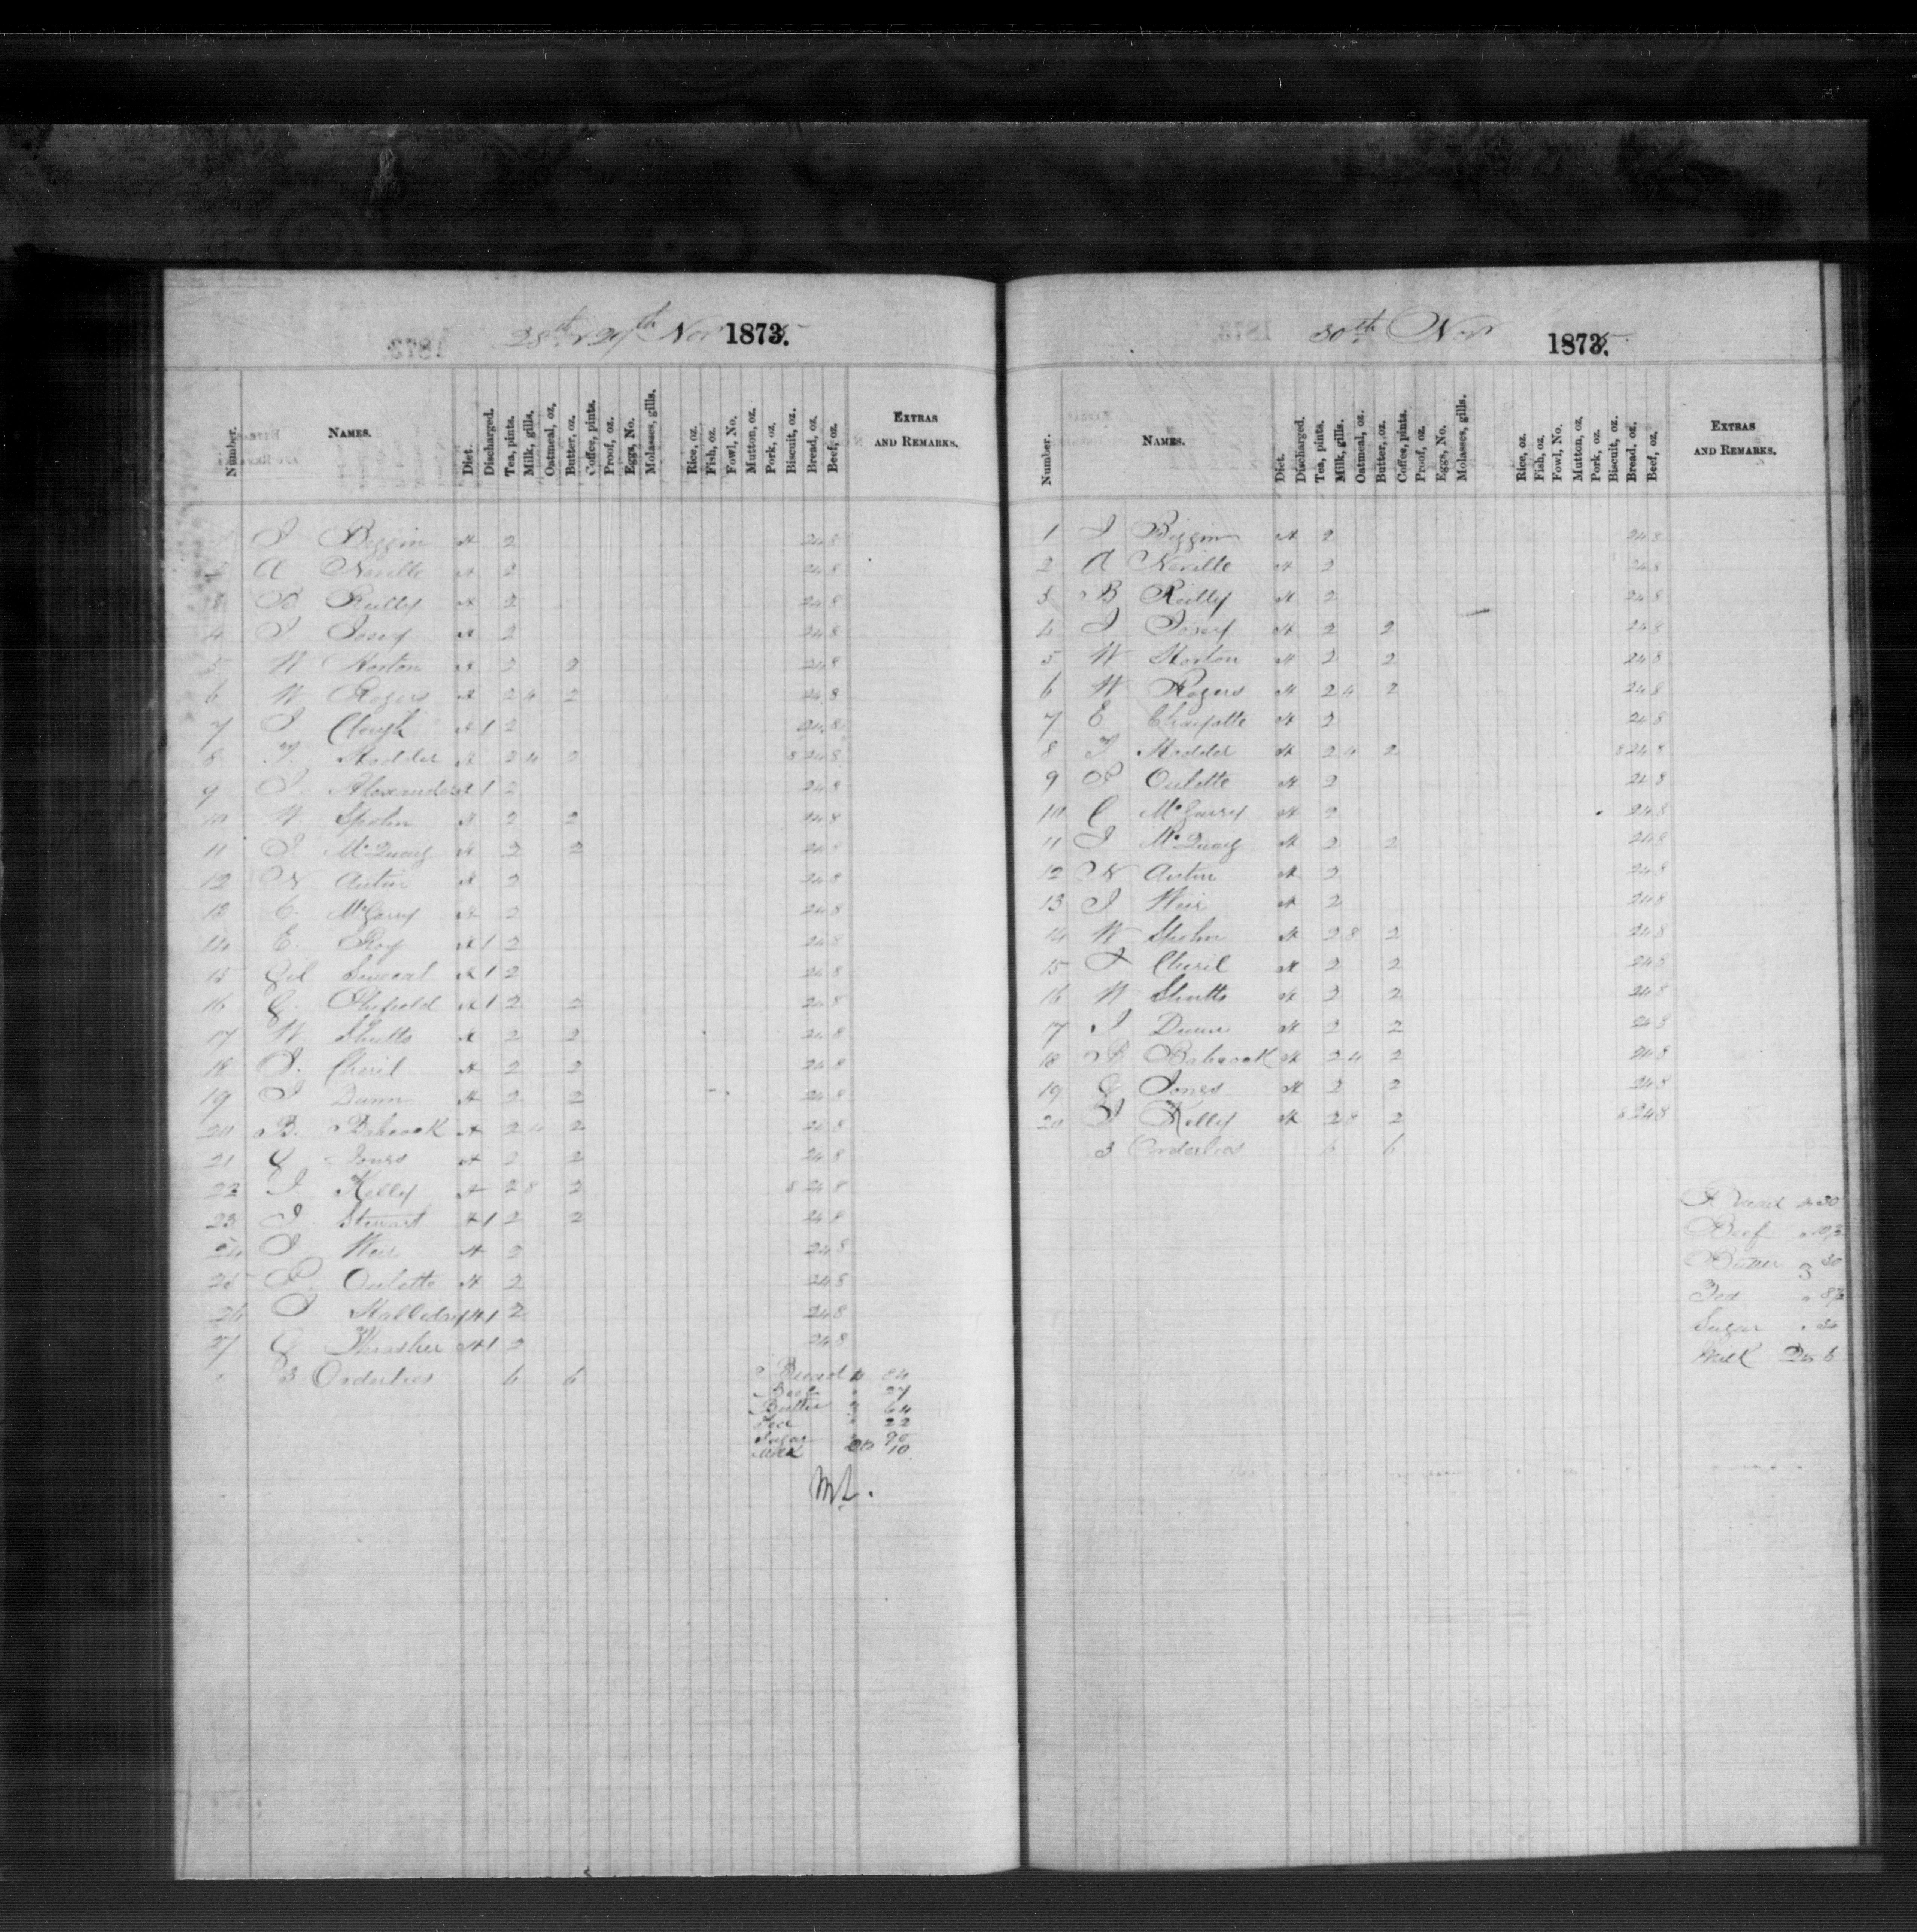 28th & 29th Nov 1873.5
Number. NAMES. Diet. Discharged. Tea, pints. Milk, gills. Oatmeal, oz. Butter, oz. Coffee, pints. Proof, oz. Eggs, No. Molasses, gills. Rice, oz. Fish, oz. Fowl, No. Mutton, oz. Pork, oz. Biscuit, oz. Bread, oz. Beef, oz. EXTRAS AND REMARKS.
J Biggin H 2 24 8
A Neville H 2 24 8
3 B Reilly H 2 24 8
4 J Josey H 2 24 8
5 W Horton H 2 2 24 8
6 W Rogers H 2 4 2 24 8
7 J. Clough H 1 2 24 8
8 T. Hodder H 2 4 2 8 24 8
9 J. Alexander H 1 2 24 8
10 W Spohn H 2 2 24 8
11 J. McQuaig H 2 2 24 8
12 N Autin H 2 24 8
13 C. McGarry H 2 24 8
14 E. Roy H 1 2 24 8
15 Gil Senecal H 1 2 24 8
16 G. H 1 2 2 24 8
17 W Shutts H 2 2 24 8
18 J. Cheril H 2 2 24 8
19 J Dunn H 2 2 24 8
20 B. Babcock H 2 4 2 24 8
21 G Jones H 2 2 24 8
22 J Kelly H 2 8 2 8 24 8
23 J Stewart H 1 2 2 24 8
24 J Weir H 2 24 8
25 P. Oulette H 2 24 8
26 J Halliday H 1 2 24 8
27 G Thrasher H 1 2 24 8
3 Orderlies 6 6
Bread 84
Beef " 27
Butter 3 64
Tea " 22
Sugar " 90
Milk Qts 10
30th Nov 1873.5
Number. NAMES. Diet. Discharged. Tea, pints. Milk, gills. Oatmeal, oz. Butter, oz. Coffee, pints. Proof, oz. Eggs, No. Molasses, gills. Rice, oz. Fish, oz. Fowl, No. Mutton, oz. Pork, oz. Biscuit, oz. Bread, oz. Beef, oz. EXTRAS AND REMARKS.
1 J Biggin H 2 24 8
2 A Neville H 2 24 8
3 B Reilly H 2 24 8
4 J Josey H 2 2 24 8
5 W Horton H 2 2 24 8
6 W Rogers H 2 4 2 24 8
7 E H 2 24 8
8 T Hodder H 2 4 2 8 24 8
9 P Oulette H 2 24 8
10 C McGarry H 2 24 8
11 J McQuaig H 2 2 24 8
12 N Autin H 2 24 8
13 J Weir H 2 24 8
14 W Spohn H 2 8 2 24 8
15 J Cheril H 2 2 24 8
16 W Shutts H 2 2 24 8
17 J Dunn H 2 2 24 8
18 B Babcock H 2 4 2 24 8
19 G Jones H 2 2 24 8
20 J Kelly H 2 8 2 8 24 8
3 Orderlies 6 6
Bread 30
Beef " 10½
Butter 3 30
Tea " 8½
Sugar "
Milk Qts 6